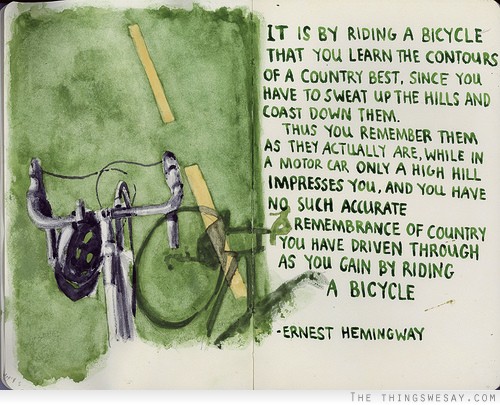 IT IS BY RIDING A BICYCLE
THAT YOU LEARN THE CONTOURS
OF A COUNTRY BEST, SINCE YOU
HAVE TO SWEAT UP THE HILLS AND
COAST DOWN THEM.
THUS YOU REMEMBER THEM
AS THEY ACTUALLY ARE, WHILE IN
A MOTOR CAR ONLY A HIGH HILL
IMPRESSES YOU, AND YOU HAVE
NO SUCH ACCURATE
REMEMBRANCE OF COUNTRY
YOU HAVE DRIVEN THROUGH
AS YOU GAIN BY RIDING
A BICYCLE
-ERNEST HEMINGWAY
THE THINGSWESAY.COM